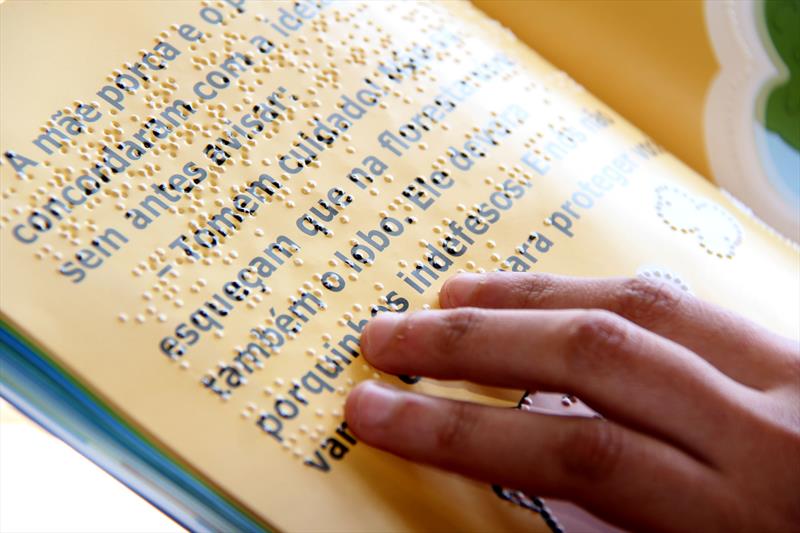 A mãe porca e o p
concordaram com a ideia
sem antes avisar:
– Tomem cuidado! Não se
esqueçam que na floresta
também o lobo. Ele devora
porquinhos indefesos. E nós não
para proteger